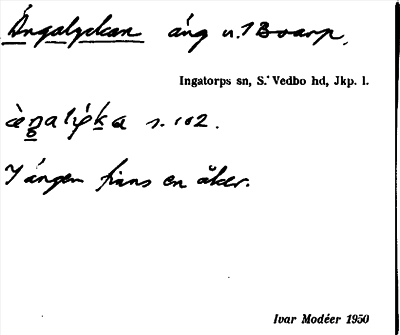 Ängalyckan äng u. 1 Boarp.
Ingatorps sn, S. Vedbo hd, Jkp. l.
s. 102.
I ängen finns en åker.
Ivar Modéer 1950